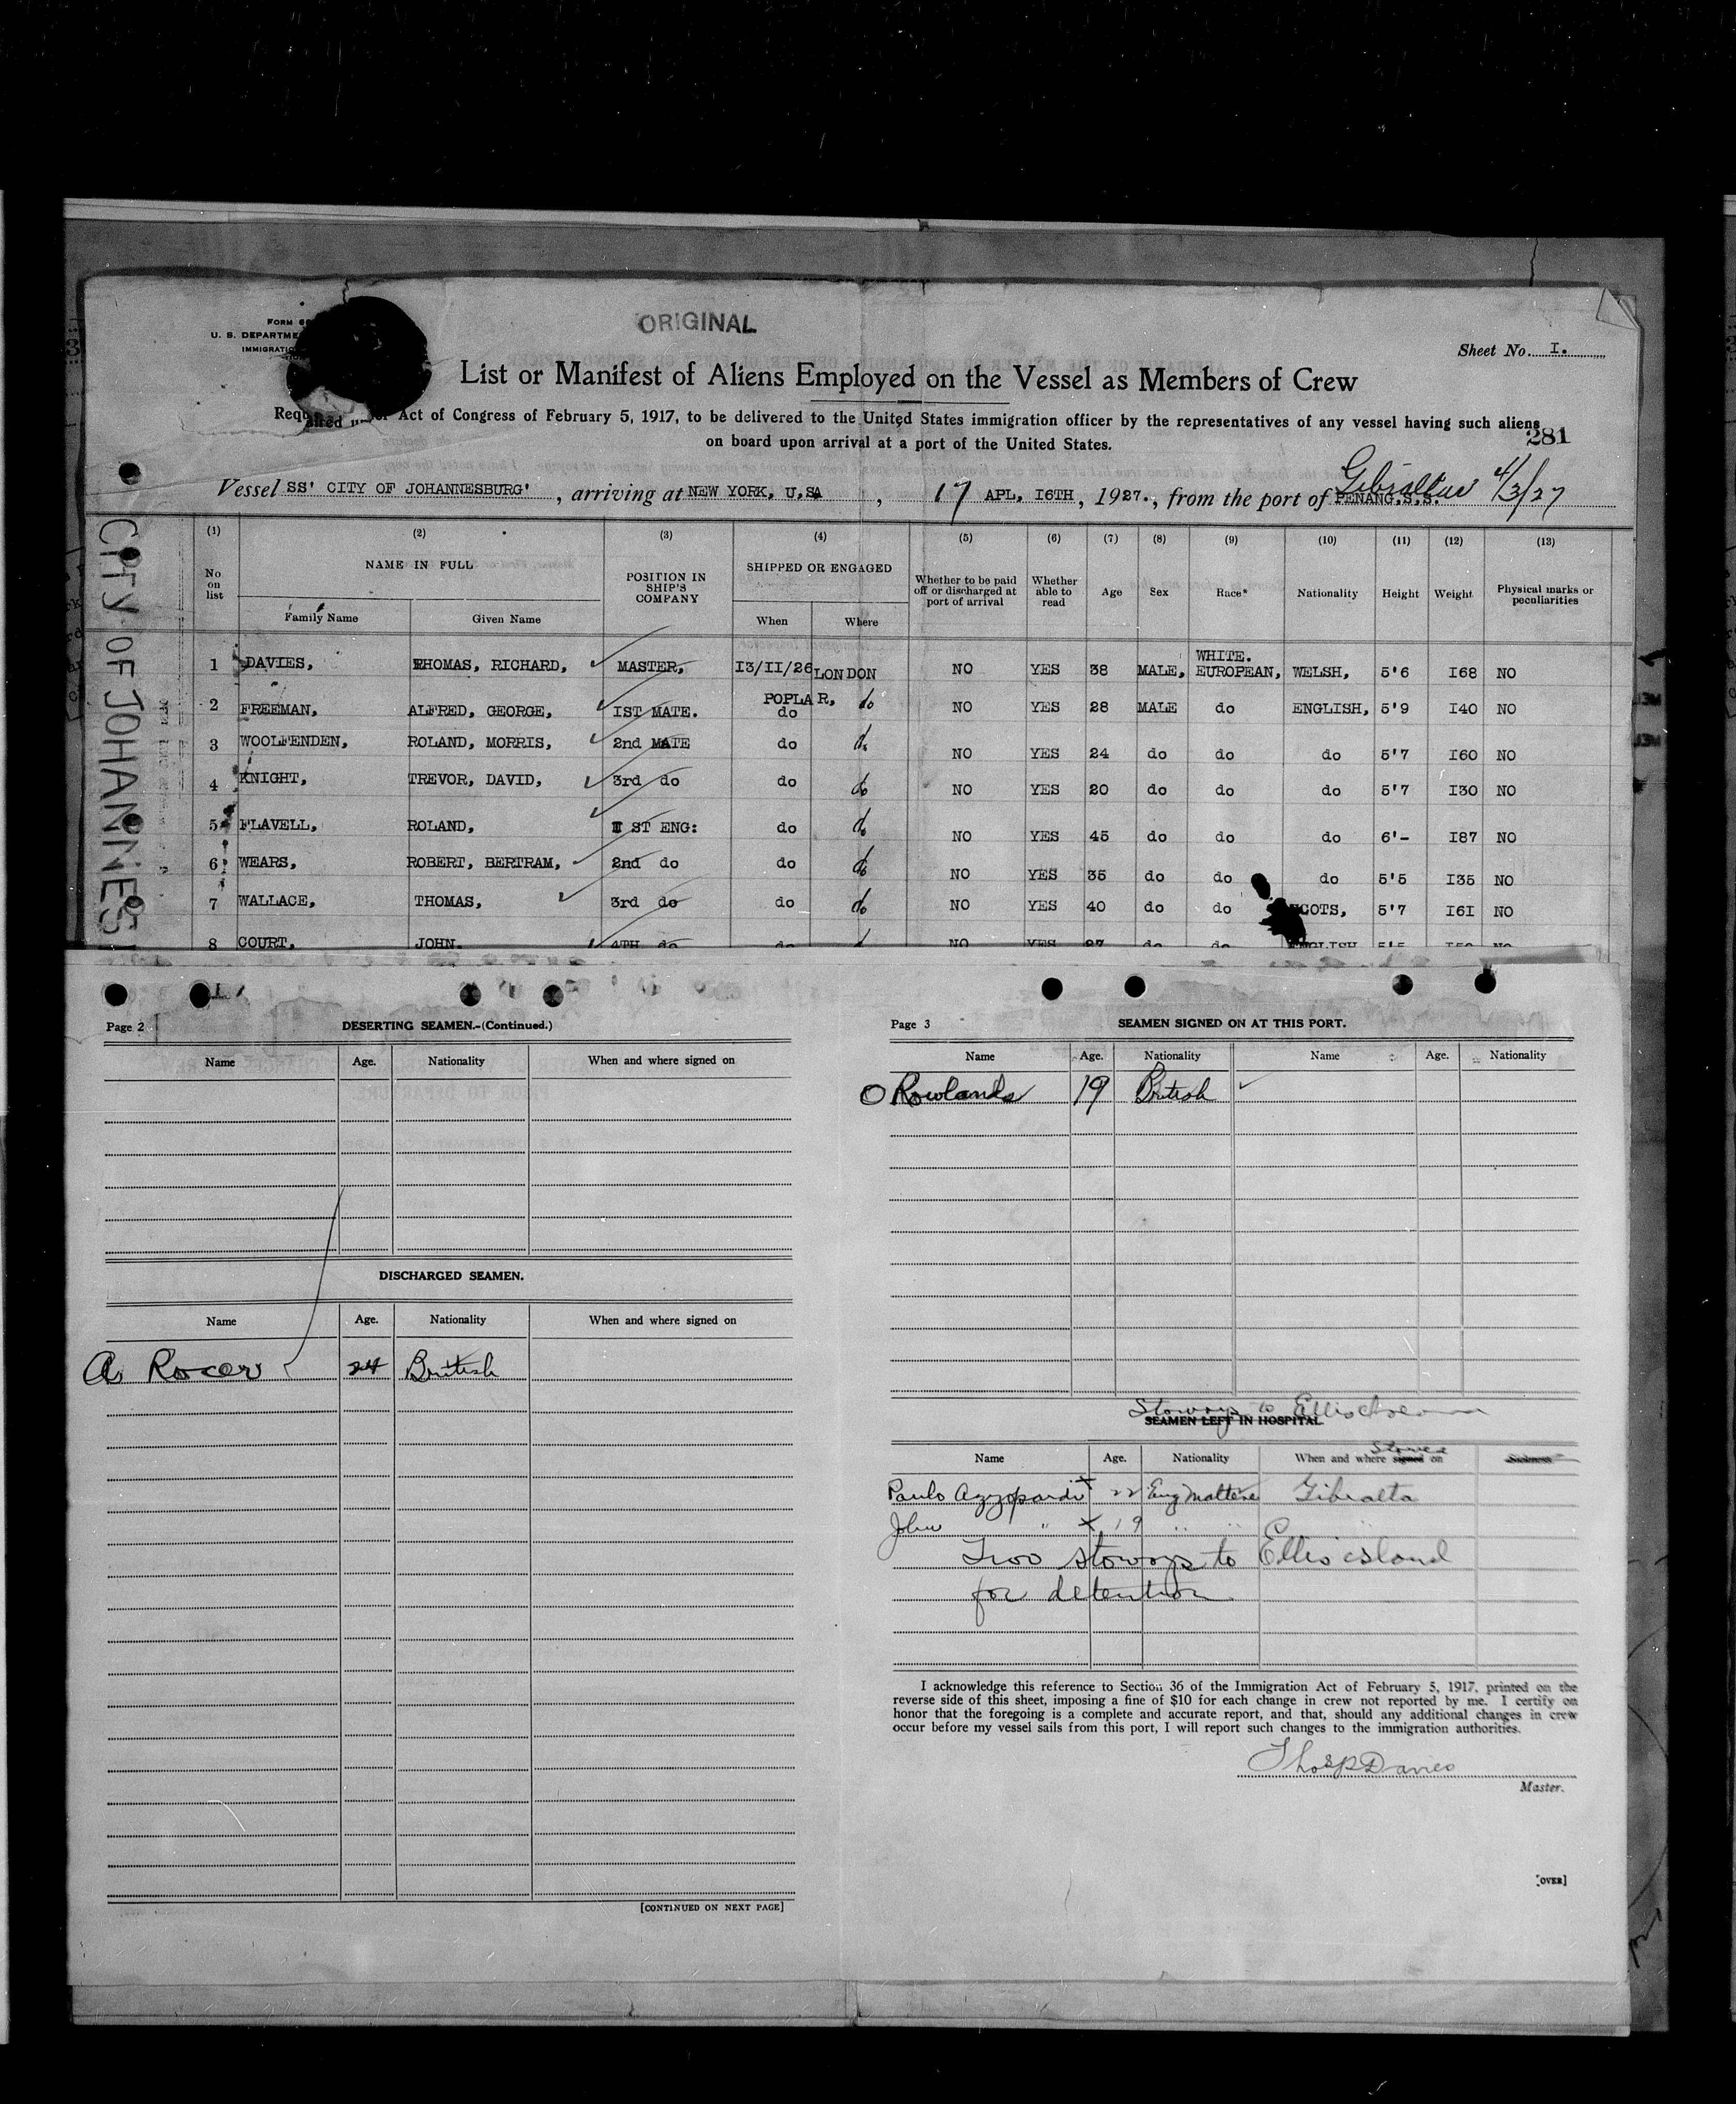 FORM 6
U. S. DEPARTME
IMMIGRATIO
ORIGINAL
Sheet No. I.
List or Manifest of Aliens Employed on the Vessel as Members of Crew
Act of Congress of February 5, 1917, to be delivered to the United States immigration officer by the representatives of any vessel having such aliens
on board upon arrival at a port of the United States.
281
Gibraltar 4/3/27
Vessel SS' CITY OF JOHANNESBURG' , arriving at NEW YORK, U,SA , 17 APL, I6TH, 1927., from the port of PENANG,S.S.
CITY OF JOHANNES
(1) (2) (3) (4) (5) (6) (7) (8) (9) (10) (11) (12) (13)
No on list NAME IN FULL POSITION IN SHIP'S COMPANY SHIPPED OR ENGAGED Whether to be paid off or discharged at port of arrival Whether able to read Age Sex Race* Nationality Height Weight Physical marks or peculiarities
Family Name Given Name When Where
1 DAVIES, THOMAS, RICHARD, MASTER, I3/II/26 LONDON NO YES 38 MALE, WHITE. EUROPEAN, WELSH, 5'6 I68 NO
POPLAR,
2 FREEMAN, ALFRED, GEORGE, IST MATE. do do NO YES 28 MALE do ENGLISH, 5'9 I40 NO
3 WOOLFENDEN, ROLAND, MORRIS, 2nd MATE do do NO YES 24 do do do 5'7 I60 NO
4 KNIGHT, TREVOR, DAVID, 3rd do do do NO YES 20 do do do 5'7 I30 NO
5 FLAVELL, ROLAND, I ST ENG: do do NO YES 45 do do do 6'- I87 NO
6 WEARS, ROBERT, BERTRAM, 2nd do do do NO YES 35 do do do 5'5 I35 NO
7 WALLACE, THOMAS, 3rd do do do NO YES 40 do do SCOTS, 5'7 I6I NO
8 COURT, JOHN. 4TH do do d NO YES 27 do do ENGLISH 5'5 NO
Page 2 DESERTING SEAMEN.-(Continued.)
Name Age. Nationality When and where signed on
DISCHARGED SEAMEN.
Name Age. Nationality When and where signed on
A. Roser 24 British
[CONTINUED ON NEXT PAGE]
Page 3 SEAMEN SIGNED ON AT THIS PORT.
Name Age. Nationality Name Age. Nationality
O Rowlands 19 British
Stoways to
SEAMEN LEFT IN HOSPITAL
Stowed
Name Age. Nationality When and where signed on Sickness
Paulo Azzopardi x 22 Eng Maltese Gibralta
John " x 19 " " "
Two stoways to Ellis island
for detention
I acknowledge this reference to Section 36 of the Immigration Act of February 5, 1917, printed on the
reverse side of this sheet, imposing a fine of $10 for each change in crew not reported by me. I certify on
honor that the foregoing is a complete and accurate report, and that, should any additional changes in crew
occur before my vessel sails from this port, I will report such changes to the immigration authorities.
Thos R Davies
Master.
[OVER]